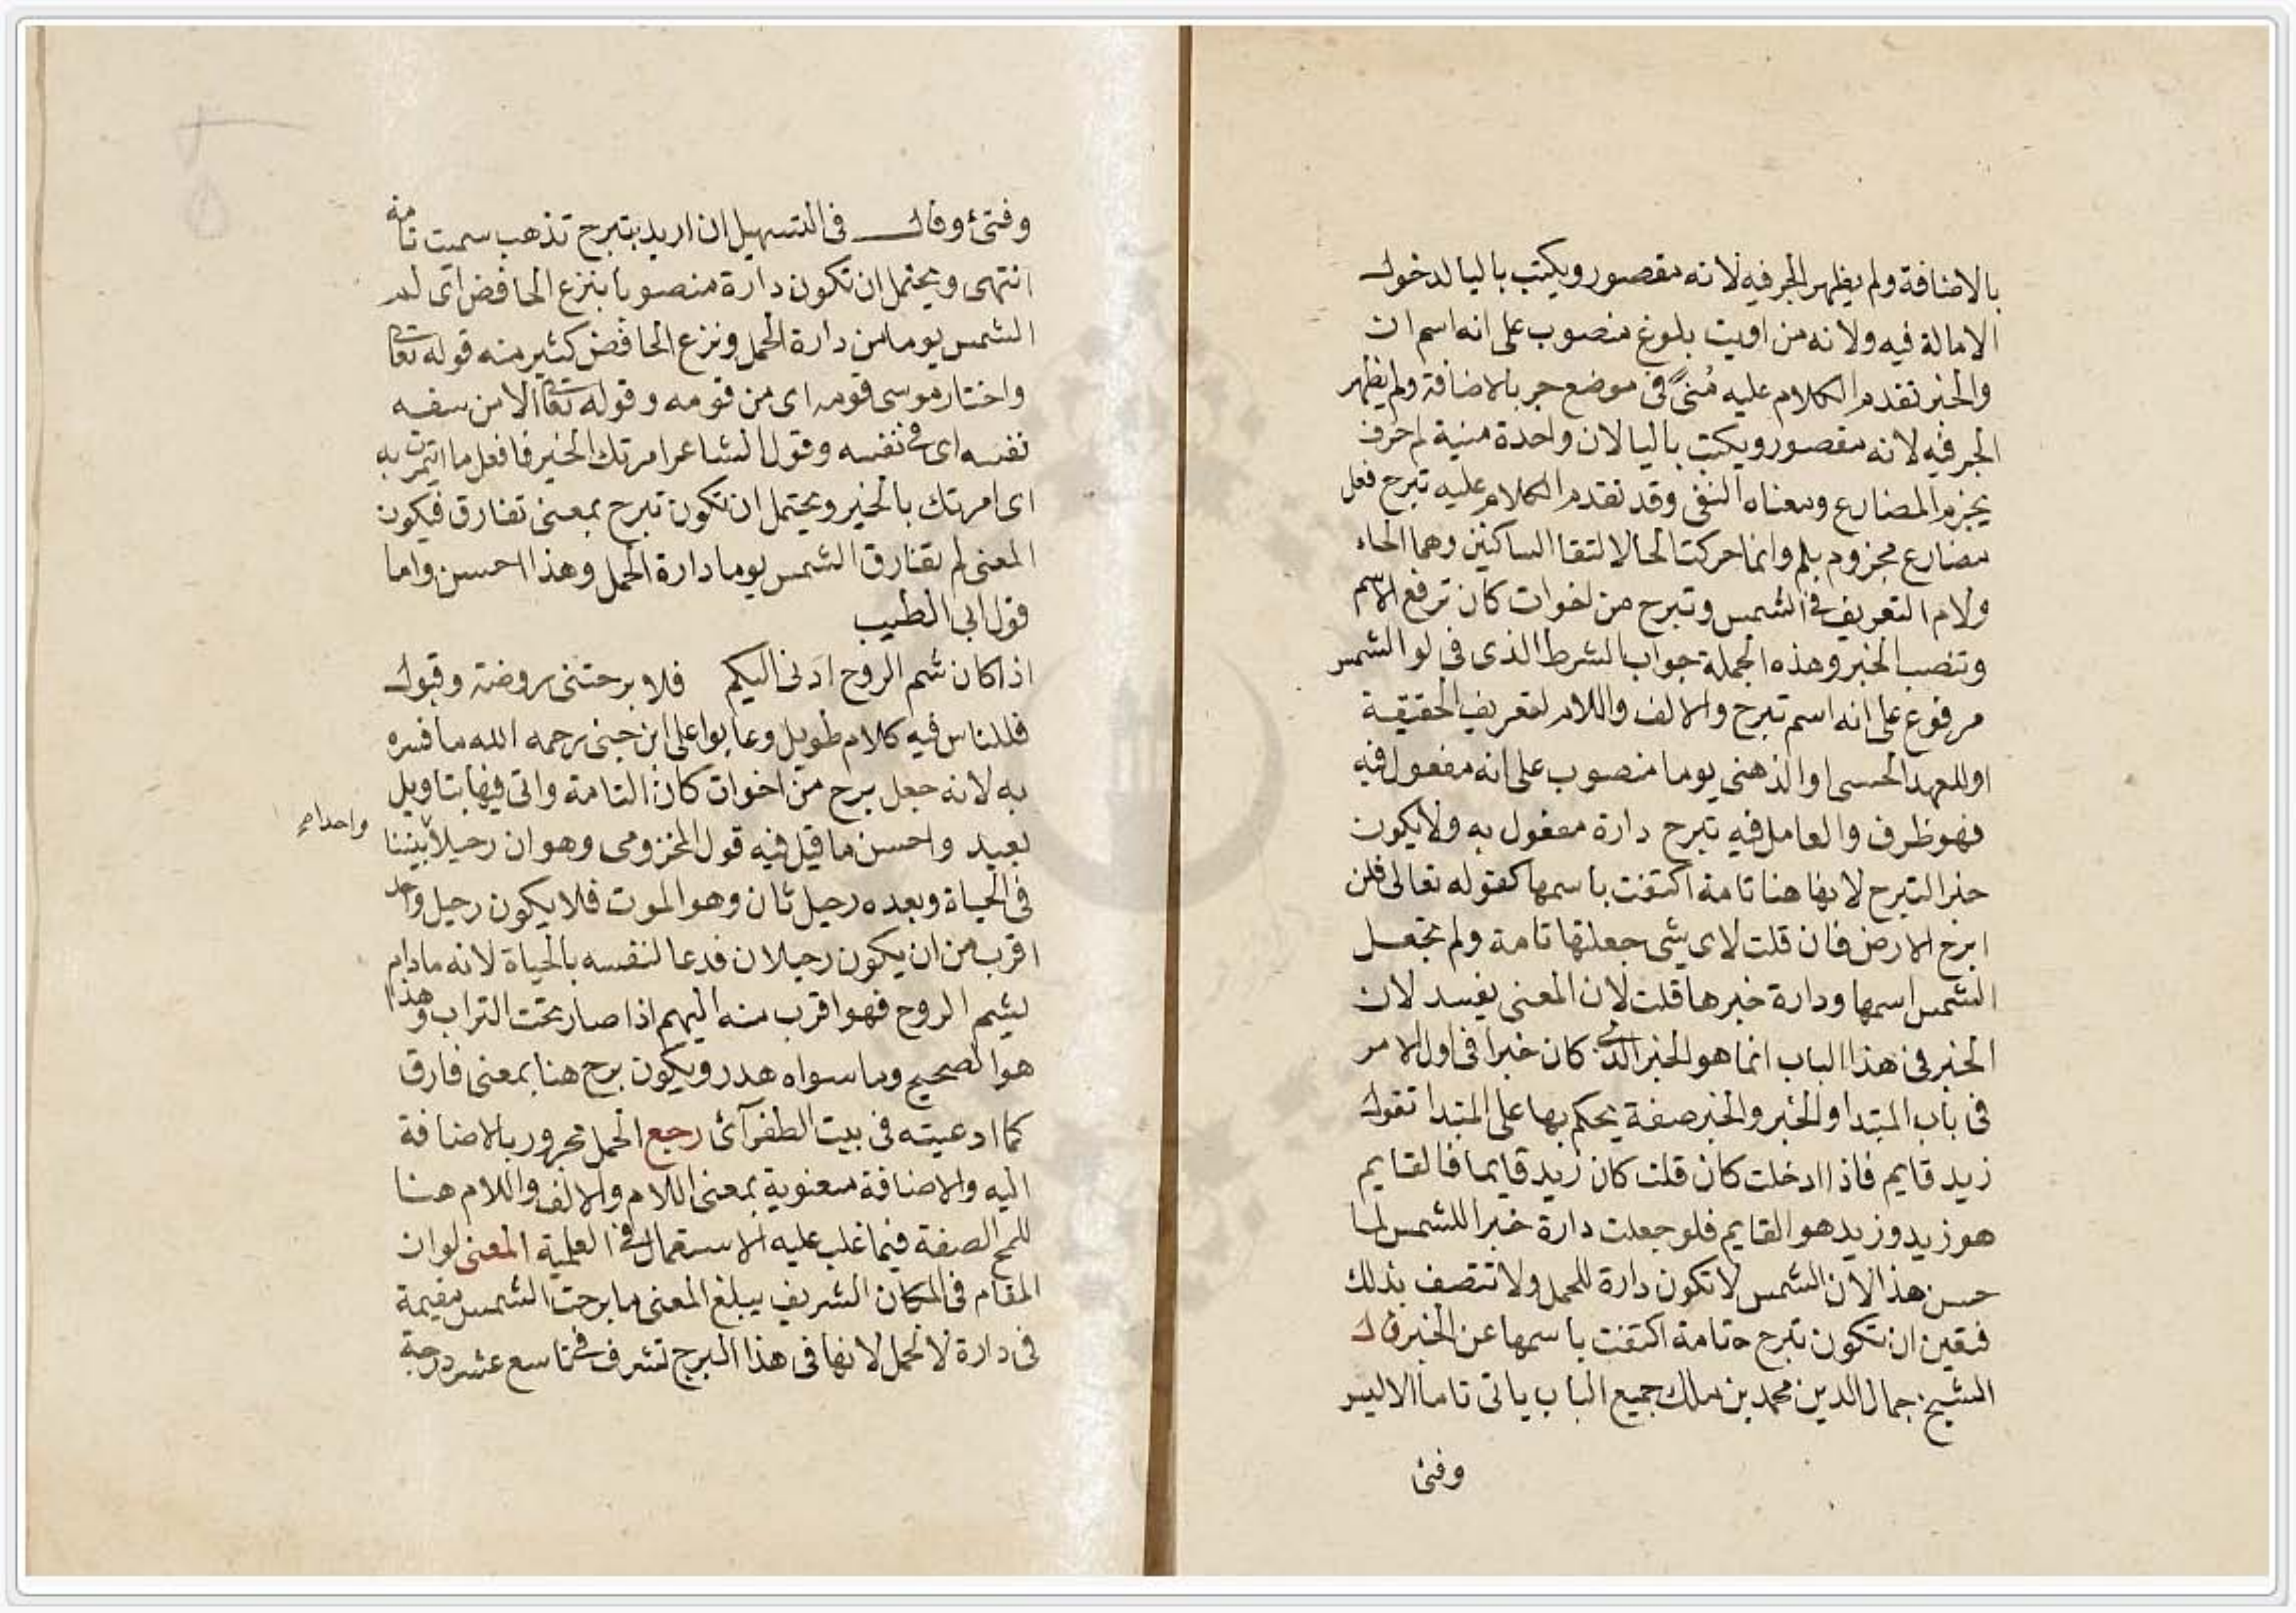 بالاضافة ولم يظهر الجر فيه لانه مقصور ويكتب باليا لدخول
الامالة فيه ولانه من اويت بلوغ منصوب على انه اسم ان
والخبر تقدم الكلام عليه مُنىً فى موضع جر بالاضافة ولم يظهر
الجر فيه لانه مقصور ويكتب باليا لان واحدة منية لم حرف
يجزم المضارع ومعناه النفى وقد تقدم الكلام عليه تبرح فعل
مضارع مجزوم بلم وانما حركت الحا لالتقا الساكنين وهما الحاء
ولام التعريف فى الشمس وتبرح من اخوات كان ترفع الاسم
وتنصب الخبر وهذه الجملة جواب الشرط الذى فى لو الشمس
مرفوع على انه اسم تبرح والالف واللام لتعريف الحقيقة
او للعهد الحسى او الذهنى يوما منصوب على انه مفعول فيه
فهو ظرف والعامل فيه تبرح دارة مفعول به ولا يكون
خبر التبرح لانها هنا تامة اكتفت باسمها كقوله تعالى فلن
ابرح الارض فان قلت لاى شى جعلتها تامة ولم تجعل
الشمس اسمها ودارة خبرها قلت لان المعنى يفسد لان
الخبر فى هذا الباب انما هو الخبر الذى كان خبرا فى اول الامر
فى باب المبتدا والخبر والخبر صفة يحكم بها على المبتدا تقول
زيد قايم فاذا ادخلت كان قلت كان زيد قايما فالقايم
هو زيد وزيد هو القايم فلو جعلت دارة خبرا للشمس لما
حسن هذا لان الشمس لا تكون دارة للحمل ولا تتصف بذلك
فتعين ان تكون تبرح تامة اكتفت باسمها عن الخبر قال
الشيخ جمال الدين محمد بن ملك جميع الباب ياتى تاما الا ليس
وفتئ
وفتئ وقال فى التسهيل ان اريد بتبرح تذهب سميت تامة
انتهى ويحتمل ان تكون دارة منصوبا بنزع الخافض اى لم
الشمس يوما من دارة الحمل ونزع الخافض كثير منه قوله تعالى
واختار موسى قومه اى من قومه وقوله تعالى الا من سفه
نفسه اى فى نفسه وقول الشاعر امرتك الخير فافعل ما ائتمرت به
اى امرتك بالخير ويحتمل ان تكون تبرح بمعنى تفارق فيكون
المعنى لم تفارق الشمس يوما دارة الحمل وهذا احسن واما
قول ابى الطيب
اذا كان شم الروح ادنى اليكم فلا برحتنى روضة وقبول
فللناس فيه كلام طويل وعابوا على ابن جنى رحمه الله ما فسره
به لانه جعل برح من اخوات كان التامة واتى فيها بتاويل
بعيد واحسن ما قيل فيه قول المخزومى وهو ان رحيلا بيننا
واحدا صح
فى الحياة وبعده رحيل ثان وهو الموت فلا يكون رحيل واحد
اقرب من ان يكون رحيلان فدعا لنفسه بالحياة لانه مادام
يشم الروح فهو اقرب منه اليهم اذا صار تحت التراب وهذا
هو الصحيح وما سواه هدر ويكون برح هنا بمعنى فارق
كما ادعيته فى بيت الطغرآئ رجع الحمل مجرور بالاضافة
اليه والاضافة معنوية بمعنى اللام والالف واللام هنا
للمح الصفة فيما غلب عليه الاستعمال فى العلمية المعنى لو ان
المقام فى المكان الشريف يبلغ المعنى ما برحت الشمس مقيمة
فى دارة لا لحمل لانها فى هذا البرج تشرف فى تاسع عشر درجة